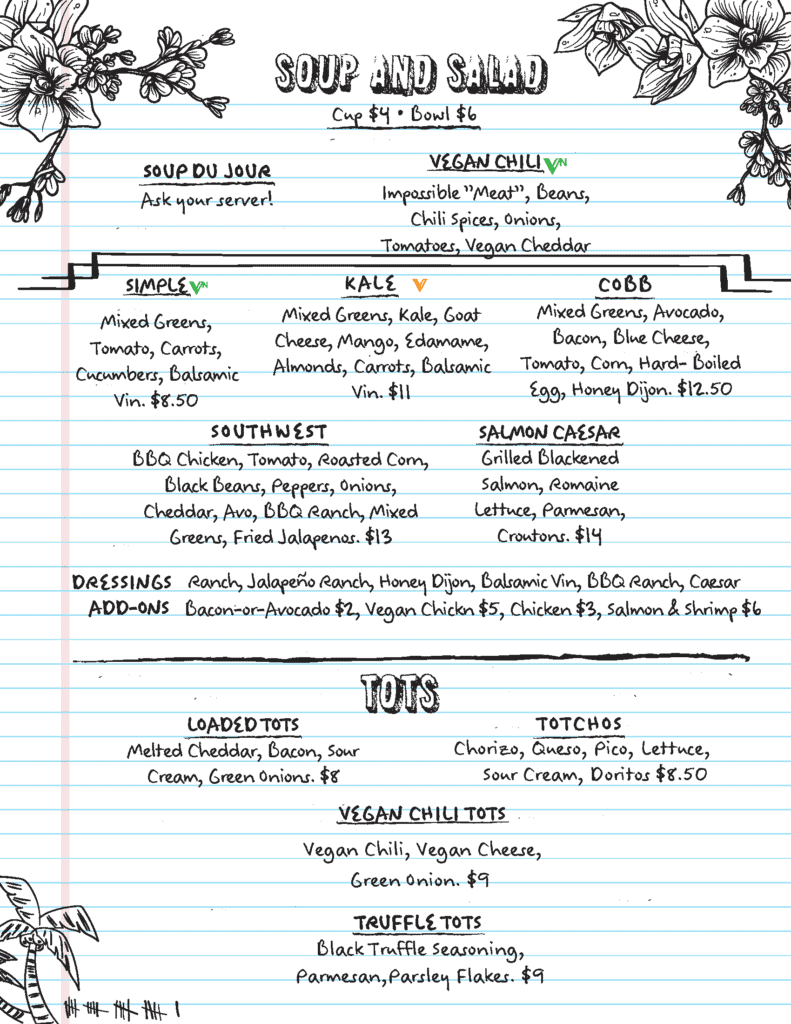 SOUP AND SALAD
Cup $4 • Bowl $6
SOUP DU JOUR
Ask your server!
VEGAN CHILI VN
Impossible "Meat", Beans,
Chili Spices, Onions,
Tomatoes, Vegan Cheddar
SIMPLE VN
Mixed Greens,
Tomato, Carrots,
Cucumbers, Balsamic
Vin. $8.50
KALE V
Mixed Greens, Kale, Goat
Cheese, Mango, Edamame,
Almonds, Carrots, Balsamic
Vin. $11
COBB
Mixed Greens, Avocado,
Bacon, Blue Cheese,
Tomato, Corn, Hard- Boiled
Egg, Honey Dijon. $12.50
SOUTHWEST
BBQ Chicken, Tomato, Roasted Corn,
Black Beans, Peppers, Onions,
Cheddar, Avo, BBQ Ranch, Mixed
Greens, Fried Jalapenos. $13
SALMON CAESAR
Grilled Blackened
Salmon, Romaine
Lettuce, Parmesan,
Croutons. $14
DRESSINGS Ranch, Jalapeño Ranch, Honey Dijon, Balsamic Vin, BBQ Ranch, Caesar
ADD-ONS Bacon-or-Avocado $2, Vegan Chickn $5, Chicken $3, Salmon & Shrimp $6
TOTS
LOADED TOTS
Melted Cheddar, Bacon, Sour
Cream, Green Onions. $8
TOTCHOS
Chorizo, Queso, Pico, Lettuce,
Sour Cream, Doritos $8.50
VEGAN CHILI TOTS
Vegan Chili, Vegan Cheese,
Green Onion. $9
TRUFFLE TOTS
Black Truffle Seasoning,
Parmesan, Parsley Flakes. $9